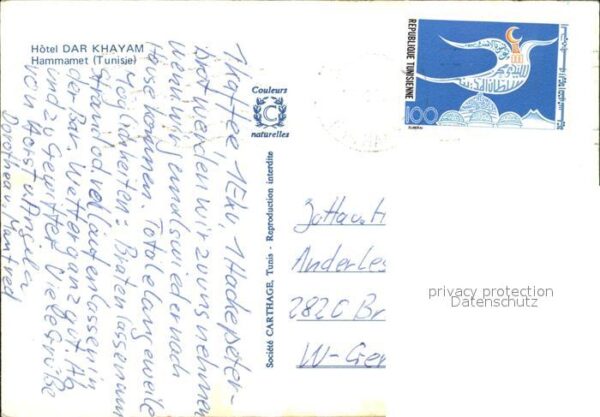 Hôtel DAR KHAYAM
Hammamet (Tunisie)
1 Kaffee 1 EKU, 1 Hackepeter-
brot werden wir zu uns nehmen
wenn wir und wieder nach
Hause kommen. Totale Langeweile
Möglichkeiten: Braten lassen am
Strand od. vollaufen lassen in
der Bar. Wetter ganz gut. Ab
und zu Gewitter. Viele Grüße
von Horst u. Angela
Dorothea u. Manfred
Couleurs
C
naturelles
Société CARTHAGE, Tunis - Reproduction interdite
REPUBLIQUE TUNISIENNE
100
Anderle
2820 Br
W-Ger
privacy protection
Datenschutz